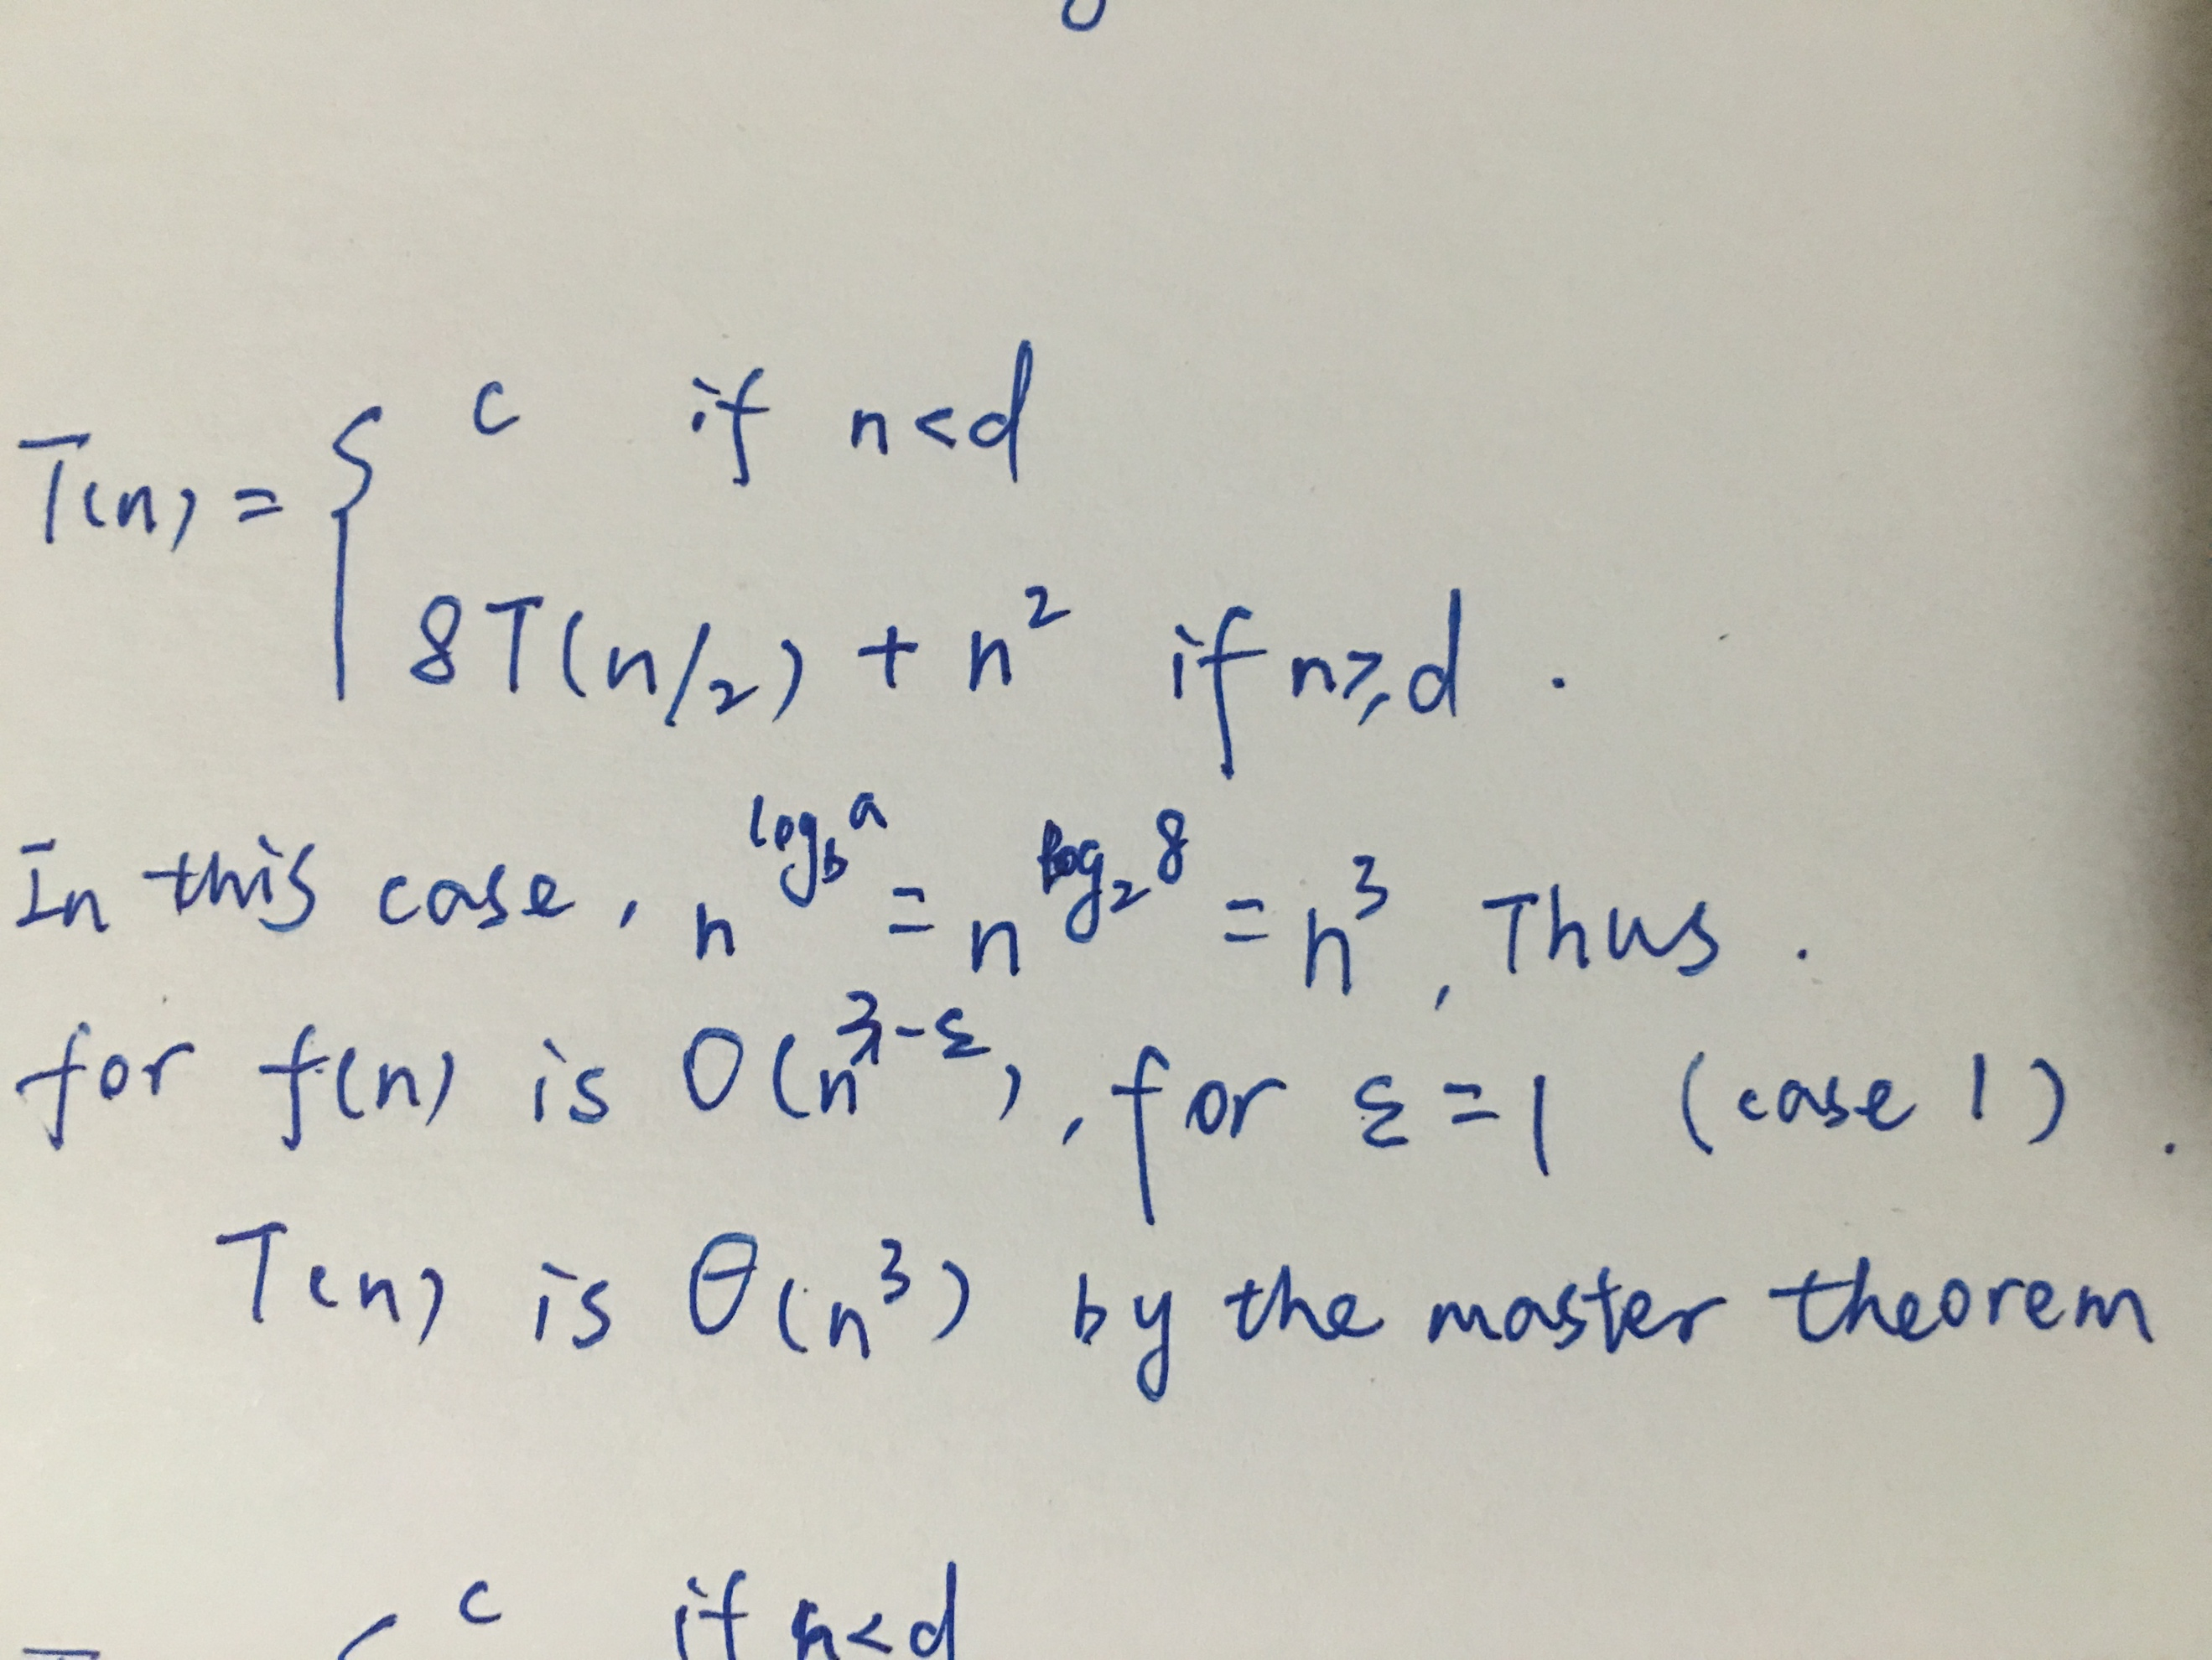 c if n<d
T(n) = {
8T(n/2) + n² if n≥d .
In this case, n^log_b a = n^log₂ 8 = n³, Thus .
for f(n) is O(n^3-ε), for ε=1 (case 1).
T(n) is θ(n³) by the master theorem
c if n<d